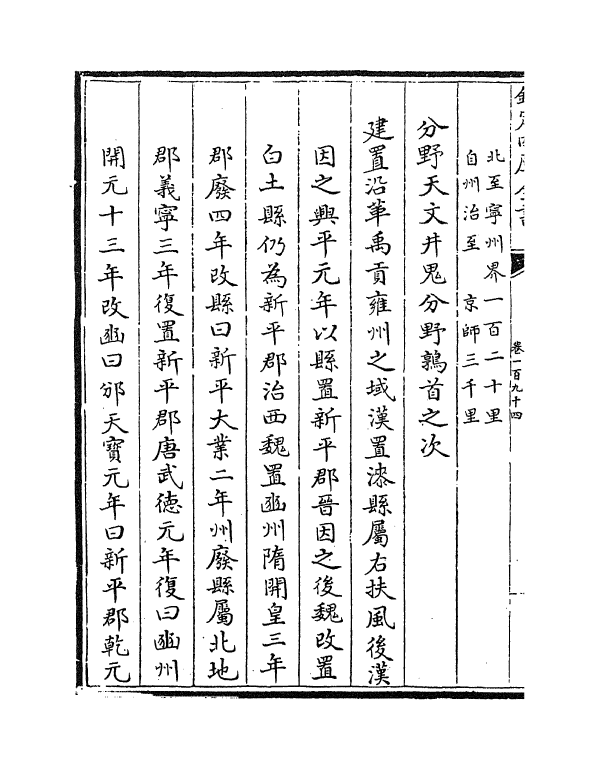 欽定四庫全書
卷一百九十四
北至寧州界一百二十里
自州治至　京師三千里
分野天文井鬼分野鶉首之次
建置沿革禹貢雍州之域漢置漆縣屬右扶風後漢
因之興平元年以縣置新平郡晉因之後魏改置
白土縣仍為新平郡治西魏置豳州隋開皇三年
郡廢四年改縣曰新平大業二年州廢縣屬北地
郡義寧三年復置新平郡唐武徳元年復曰豳州
開元十三年改豳曰邠天寳元年曰新平郡乾元